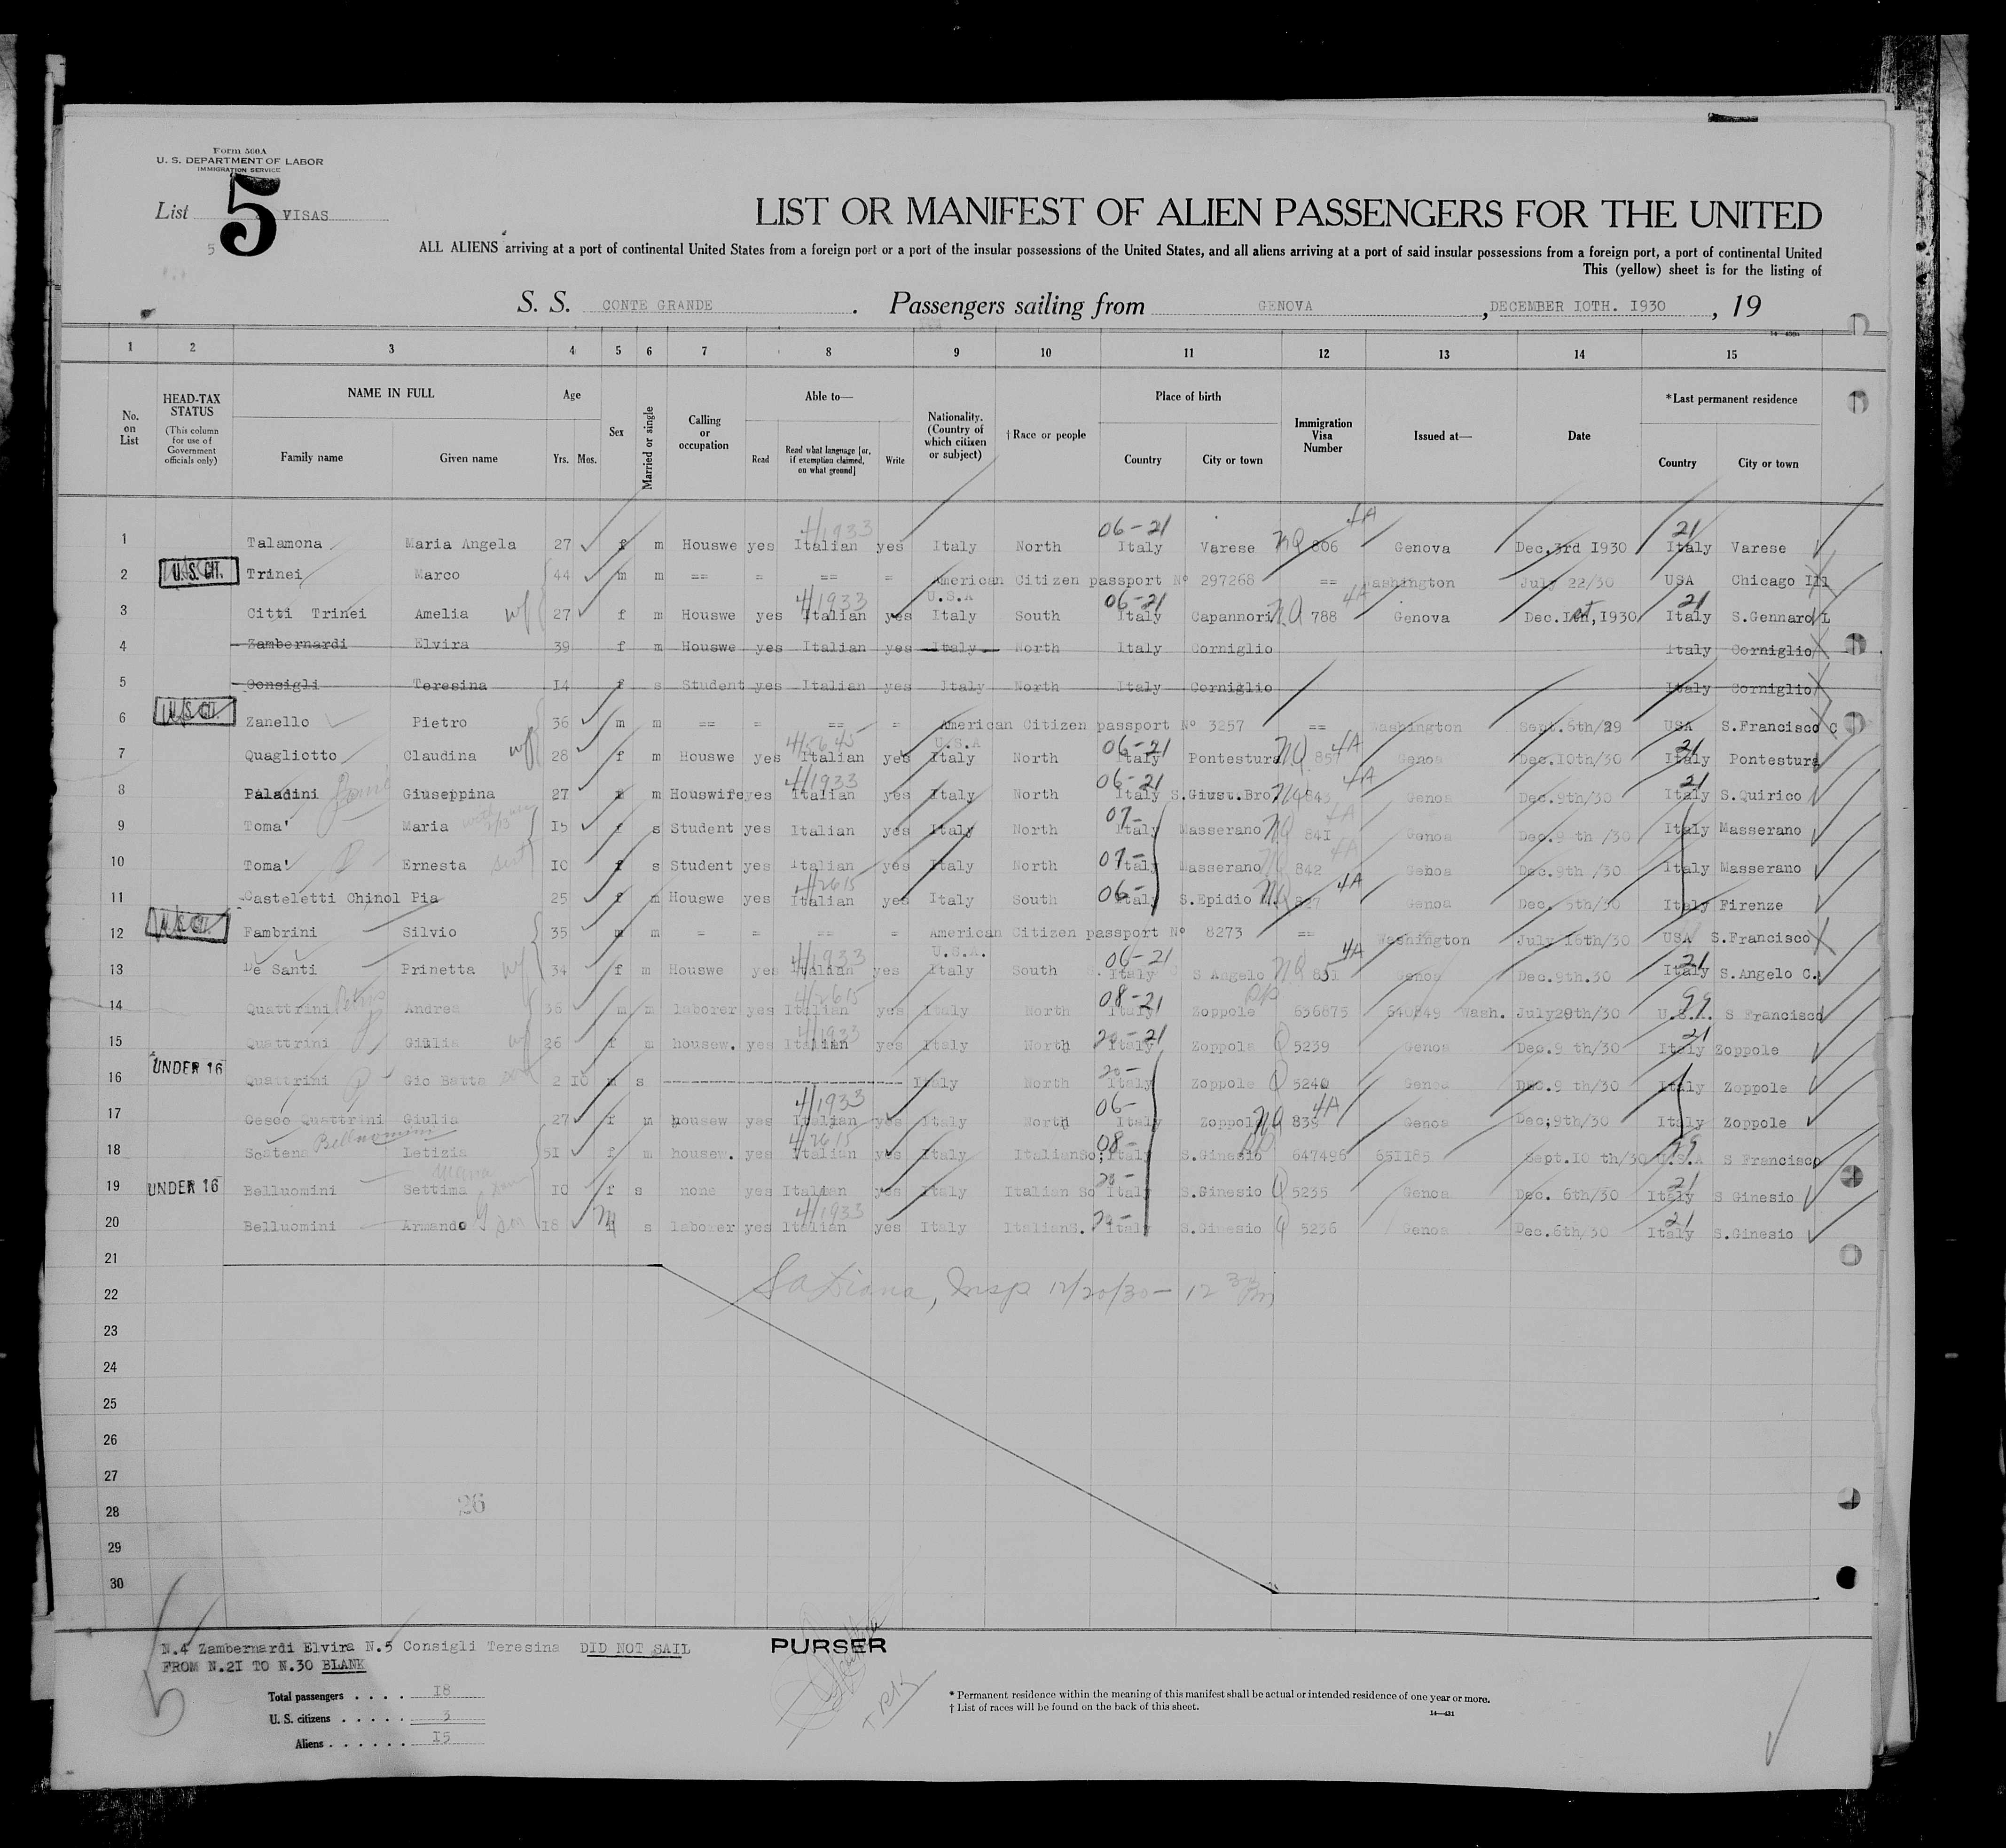 Form 500A
U. S. DEPARTMENT OF LABOR
IMMIGRATION SERVICE
List 5 VISAS
5
LIST OR MANIFEST OF ALIEN PASSENGERS FOR THE UNITED
ALL ALIENS arriving at a port of continental United States from a foreign port or a port of the insular possessions of the United States, and all aliens arriving at a port of said insular possessions from a foreign port, a port of continental United
This (yellow) sheet is for the listing of
S. S. CONTE GRANDE . Passengers sailing from GENOVA , DECEMBER IOTH. I930 , 19
1 2 3 4 5 6 7 8 9 10 11 12 13 14 15
No. on List
HEAD-TAX STATUS (This column for use of Government officials only)
NAME IN FULL
Family name Given name
Age Yrs. Mos.
Sex
Married or single
Calling or occupation
Able to—
Read Read what language [or, if exemption claimed, on what ground] Write
Nationality. (Country of which citizen or subject)
† Race or people
Place of birth
Country City or town
Immigration Visa Number
Issued at—
Date
*Last permanent residence
Country City or town
1 Talamona Maria Angela 27 f m Houswe yes 4/1933 Italian yes Italy North 06-21 Italy Varese NQ 806 4A Genova Dec.3rd I930 21 Italy Varese
2 U.S. CIT. Trinei Marco 44 m m == = == = American Citizen passport Nº 297268 == Washington July 22/30 USA Chicago Ill
U.S.A
3 Citti Trinei Amelia wf 27 f m Houswe yes 4/1933 Italian yes Italy South 06-21 Italy Capannori NQ 788 4A Genova Dec. I930 21 Italy S.Gennaro L
4 Zambernardi Elvira 39 f m Houswe yes Italian yes Italy North Italy Corniglio Italy Corniglio
5 Consigli Teresina I4 f s Student yes Italian yes Italy North Italy Corniglio Italy Corniglio
6 U.S. CIT. Zanello Pietro 36 m m == = == = American Citizen passport Nº 3257 == Washington Sept.5th/29 USA S.Francisco C
U.S.A
7 Quagliotto Claudina wf 28 f m Houswe yes 4/5645 Italian yes Italy North 06-21 Italy Pontestura NQ 857 4A Genoa Dec.I0th/30 21 Italy Pontestura
8 Paladini Giuseppina 27 m Houswife yes 4/1933 Italian yes Italy North 06-21 Italy S.Giust.Bro NQ 843 4A Genoa Dec.9th/30 21 Italy S.Quirico
9 Toma' Maria I5 f s Student yes Italian yes Italy North 07- Italy Masserano NQ 84I 4A Genoa Dec.9 th /30 Italy Masserano
10 Toma' Ernesta IO f s Student yes Italian yes Italy North 07- Italy Masserano NQ 842 4A Genoa Dec.9th /30 Italy Masserano
11 Casteletti Chinol Pia 25 f m Houswe yes 4/2615 Italian yes Italy South 06- Italy S.Epidio NQ 827 4A Genoa Dec. 5th/30 Italy Firenze
12 U.S. CIT. Fambrini Silvio 35 m m = = == = American Citizen passport Nº 8273 == Washington July I6th/30 USA S.Francisco
U.S.A.
13 De Santi Prinetta wf 34 f m Houswe yes 4/1933 Italian yes Italy South 06-21 Italy S Angelo NQ 85I 4A Genoa Dec.9th.30 21 Italy S.Angelo C.
14 Quattrini Andrea 36 m m laborer yes 4/2615 Italian yes Italy North 08-21 Italy Zoppole RP 636875 640849 Wash. July29th/30 99 U.S.A. S Francisco
15 Quattrini Giulia wf 26 f m housew. yes 4/1933 Italian yes Italy North 20-21 Italy Zoppola Q 5239 Genoa Dec.9 th/30 21 Italy Zoppole
16 UNDER 16 Quattrini Gio Batta son 2 IO m s Italy North 20- Italy Zoppole Q 5240 Genoa Dec.9 th/30 Italy Zoppole
17 Cesco Quattrini Giulia 27 f m housew yes 4/1933 Italian yes Italy North 06- Italy Zoppol NQ 839 4A Genoa Dec;9th/30 Italy Zoppole
18 Scatena Belluomini Letizia 5I f m housew. yes 4/2615 Italian yes Italy ItalianSo; 08- Italy S.Ginesio RP 647496 65II85 Sept.IO th/30 99 U.S.A S Francisco
19 UNDER 16 Belluomini Settima IO f s none yes Italian yes Italy Italian So 20- Italy S.Ginesio Q 5235 Genoa Dec. 6th/30 21 Italy S Ginesio
20 Belluomini Armando son I8 M s laborer yes 4/1933 Italian yes Italy ItalianS. 20- Italy S.Ginesio Q 5236 Genoa Dec.6th/30 21 Italy S.Ginesio
21
22 Insp 12/20/30 - 12 30 Pm
23
24
25
26
27
28 26
29
30
N.4 Zambernardi Elvira N.5 Consigli Teresina DID NOT SAIL
FROM N.2I TO N.30 BLANK
PURSER
Total passengers . . . . I8
U. S. citizens . . . . . 3
Aliens . . . . . . I5
* Permanent residence within the meaning of this manifest shall be actual or intended residence of one year or more.
† List of races will be found on the back of this sheet.
14—431